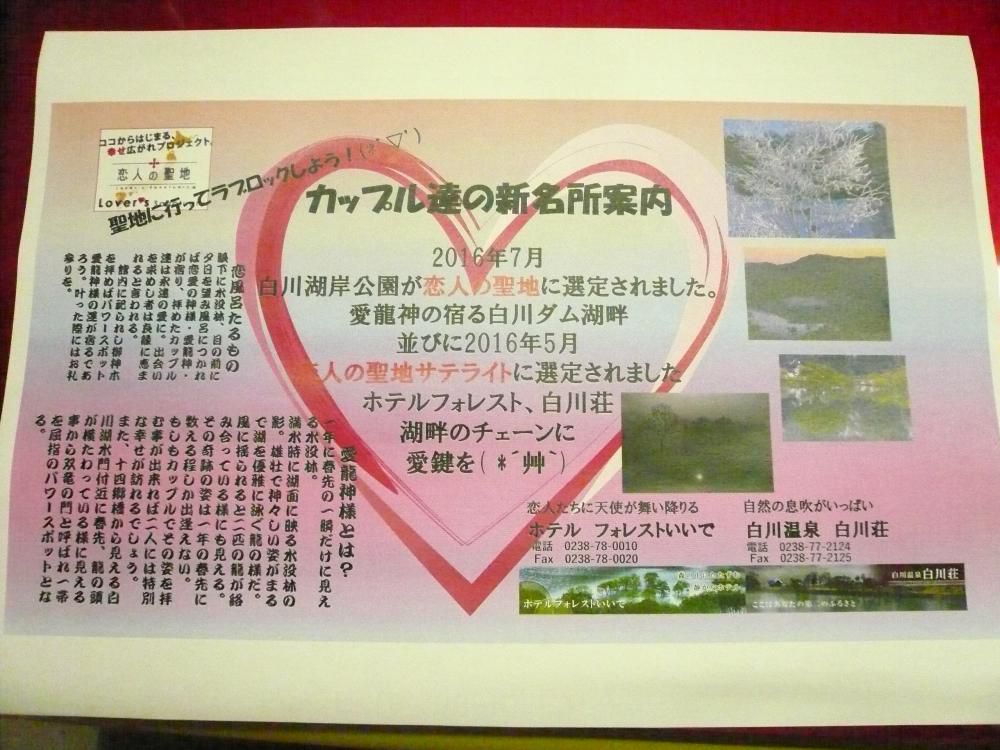 ココからはじまる、
幸せ広がれプロジェクト
恋人の聖地
Lover's
聖地に行ってラブロックしよう！(*´▽`)
カップル達の新名所案内
2016年7月
白川湖岸公園が恋人の聖地に選定されました。
愛龍神の宿る白川ダム湖畔
並びに2016年5月
恋人の聖地サテライトに選定されました
ホテルフォレスト、白川荘
湖畔のチェーンに
愛鍵を(*´艸`)
恋風呂たるもの
眼下に水没林、目の前に
夕日を望み風呂につかれ
ば恋愛の神様・愛龍神・
が宿り、拝めたカップル
達は永遠の愛に。出会い
を求めし者は良縁に恵ま
れると言われる。
館内に祀られし御神木
を拝めばパワースポット
愛龍神様の運が宿るであ
ろう。叶った際にはお礼
参りを。
愛龍神様とは？
一年に春先の一瞬だけに見え
る水没林。
満水時に湖面に映る水没林の
影。雄壮で神々しい姿がまる
で湖を優雅に泳ぐ龍の様だ。
風に揺られると二匹の龍が絡
み合っている様にも見える。
その奇跡の姿は一年の春先に
数える程しか出逢えない。
もしもカップルでその姿を拝
む事が出来れば二人には特別
な幸せが訪れるでしょう。
また、十四郷橋から見える白
川湖水門付近に春先、龍の頭
が横たわっている様に見える
事から双竜の門と呼ばれ一帯
を屈指のパワースポットとな
る。
恋人たちに天使が舞い降りる
ホテル フォレストいいで
電話 0238-78-0010
Fax 0238-78-0020
自然の息吹がいっぱい
白川温泉 白川荘
電話 0238-77-2124
Fax 0238-77-2125
ホテルフォレストいいで
白川温泉 白川荘
ここはあなたの第二のふるさと